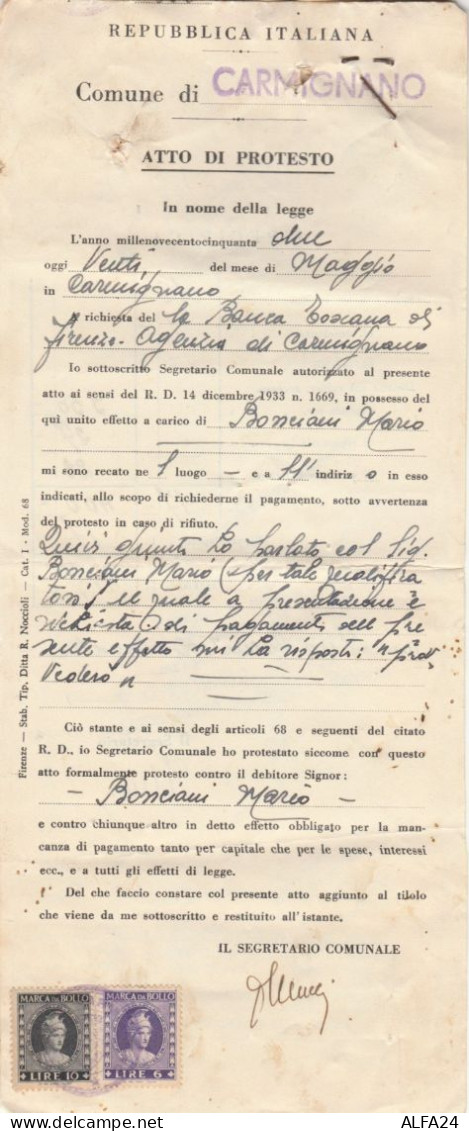 REPUBBLICA ITALIANA
Comune di CARMIGNANO
ATTO DI PROTESTO
In nome della legge
L'anno millenovecentocinquanta due
oggi Venti del mese di Maggio
in Carmignano
a richiesta del la Banca Toscana di
Firenze - Agenzia di Carmignano
Io sottoscritto Segretario Comunale autorizzato al presente
atto ai sensi del R. D. 14 dicembre 1933 n. 1669, in possesso del
quì unito effetto a carico di Bonciani Mario
mi sono recato ne l luogo — e a ll' indiriz o in esso
indicati, allo scopo di richiederne il pagamento, sotto avvertenza
del protesto in caso di rifiuto.
Quivi giunto ho parlato col Sig.
Bonciani Mario (per tale qualifica
tosi) il quale a presentazione e
richiesta di pagamento del pre
sente effetto mi ha risposto: "
Vedero"
Ciò stante e ai sensi degli articoli 68 e seguenti del citato
R. D., io Segretario Comunale ho protestato siccome con questo
atto formalmente protesto contro il debitore Signor:
— Bonciani Mario —
e contro chiunque altro in detto effetto obbligato per la man-
canza di pagamento tanto per capitale che per le spese, interessi
ecc., e a tutti gli effetti di legge.
Del che faccio constare col presente atto aggiunto al titolo
che viene da me sottoscritto e restituito all'istante.
IL SEGRETARIO COMUNALE
Firenze — Stab. Tip. Ditta R. Noccioli — Cat. I - Mod. 68
MARCA DA BOLLO
LIRE 10
MARCA DA BOLLO
LIRE 6
www.delcampe.net
ALFA24